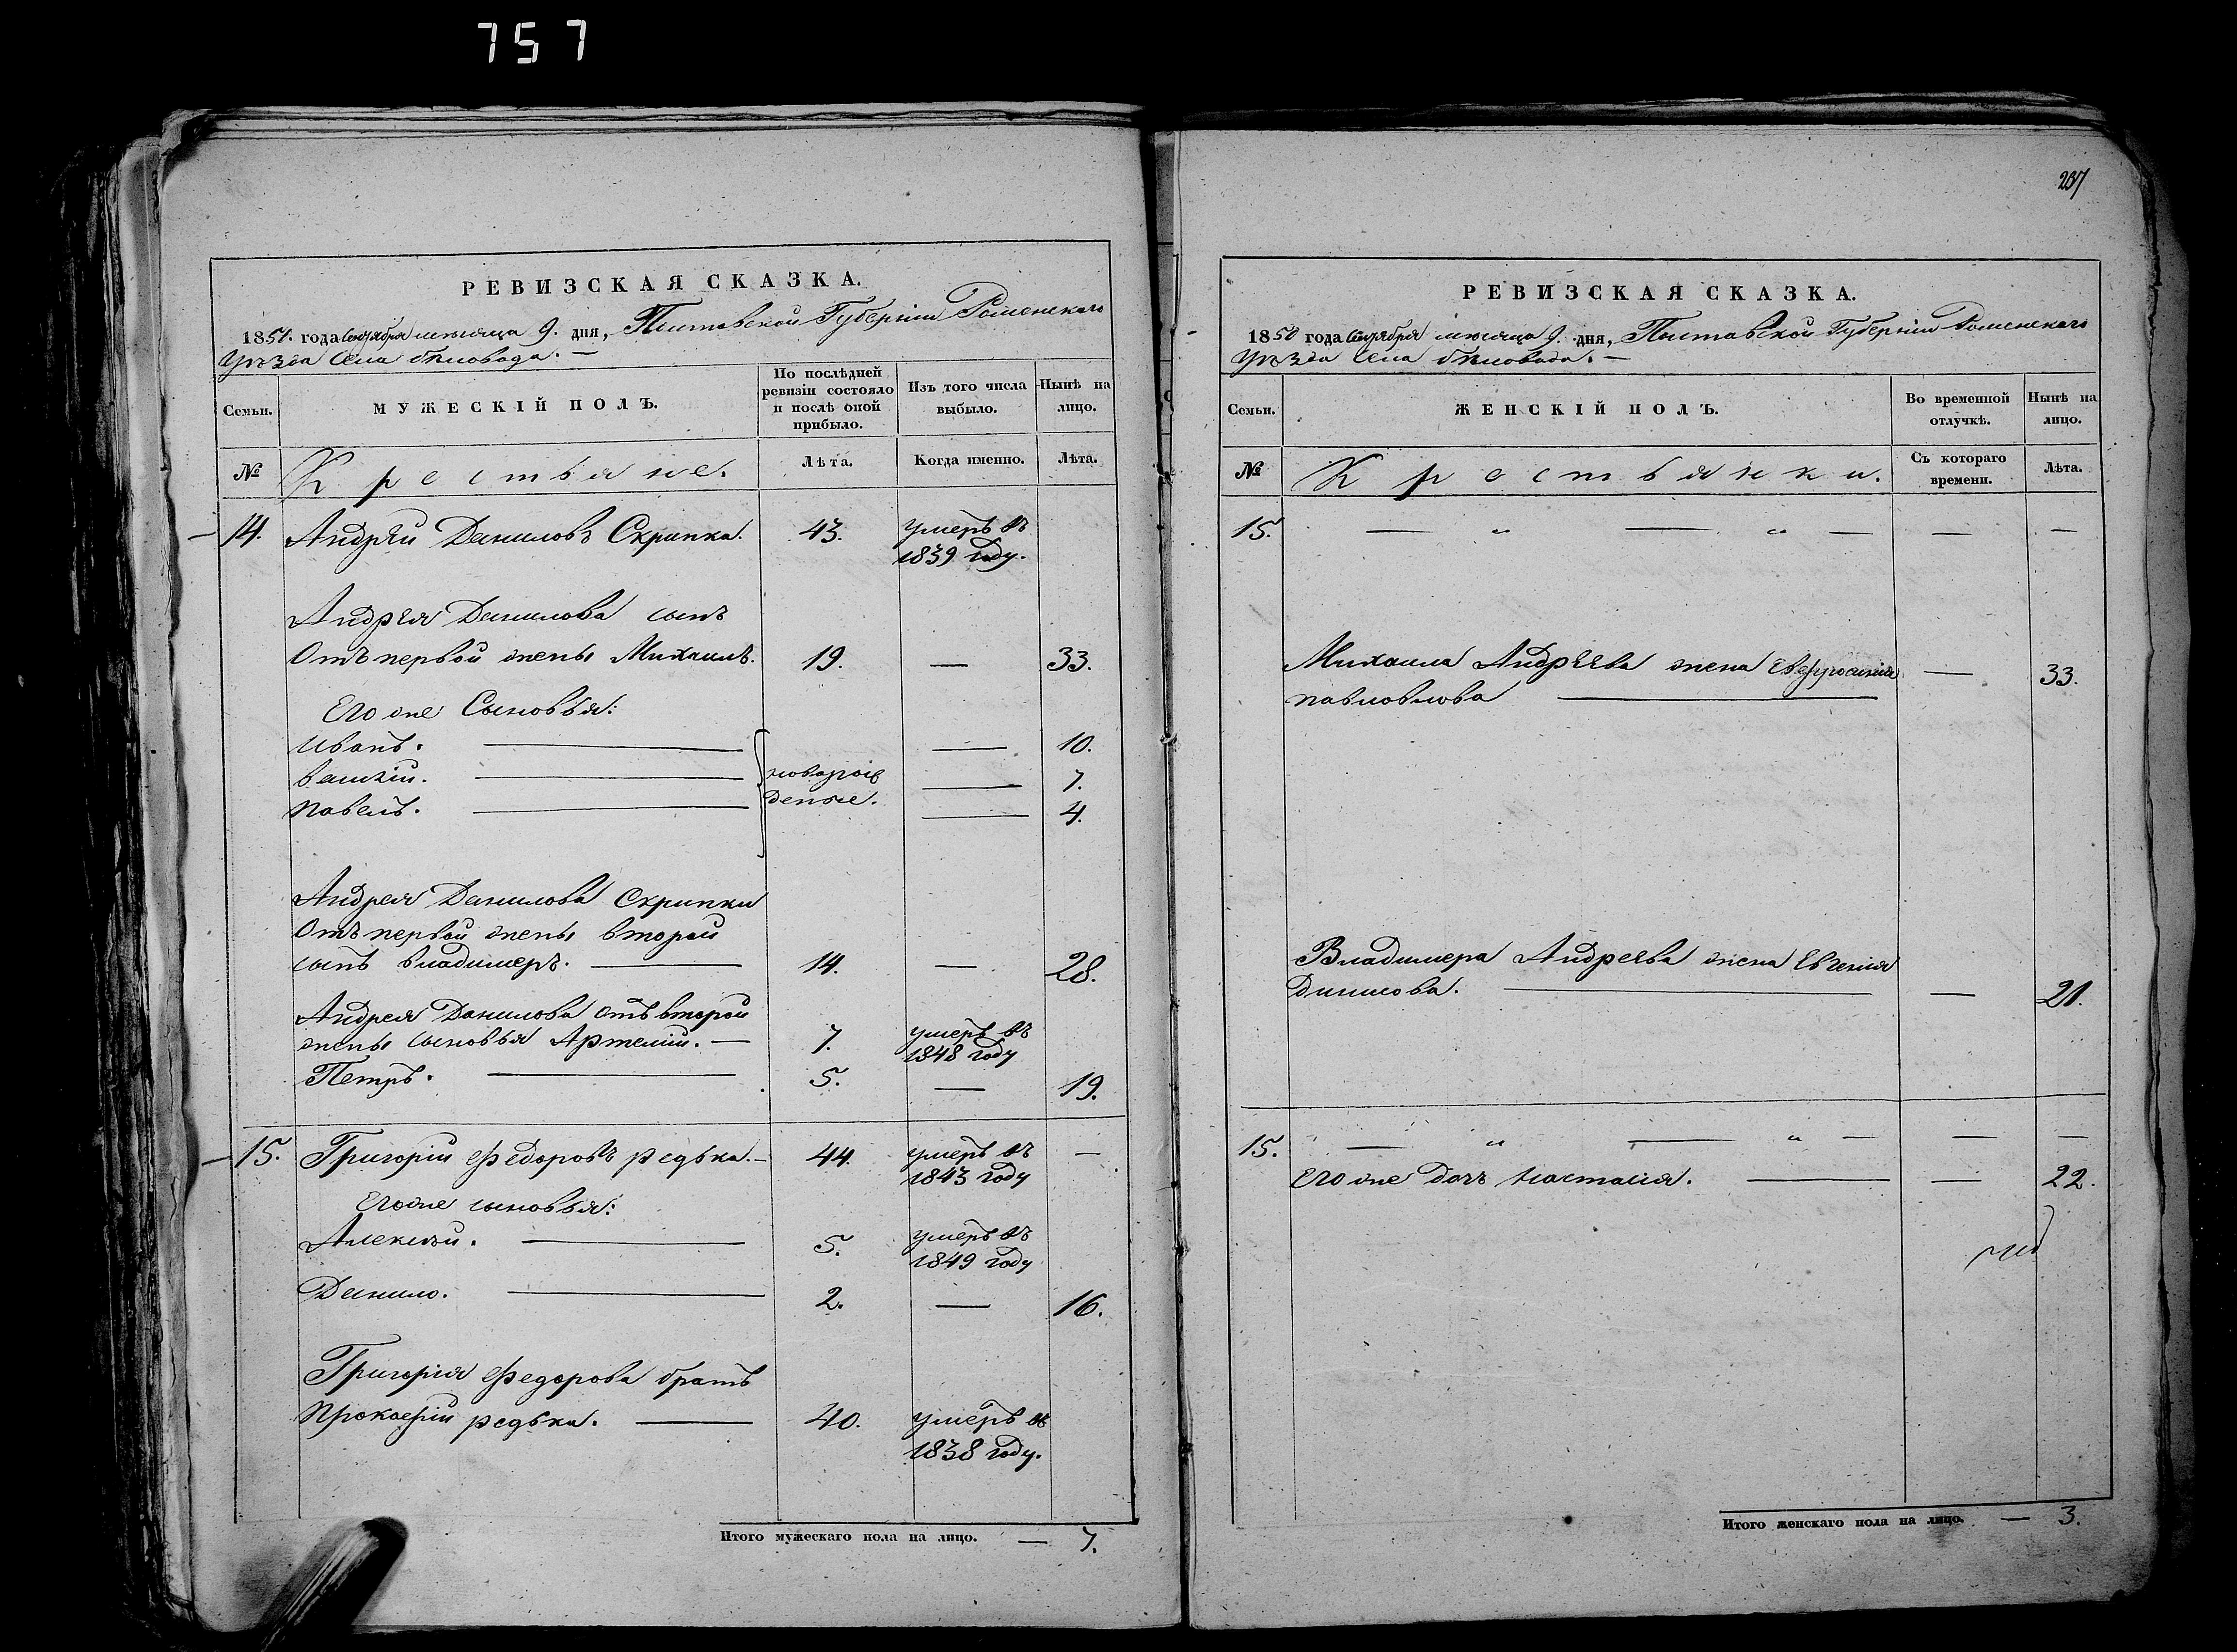 757
РЕВИЗСКАЯ СКАЗКА.
1850. года Сентября мѣсяца 9. дня, Полтавской Губерніи Роменскаго
Уѣзда Села бѣловода. —
Семьи.
МУЖЕСКІЙ ПОЛЪ.
По послѣдней ревизіи состояло и послѣ оной прибыло.
Изъ того числа выбыло.
Нынѣ на лицо.
№
Крестьяне.
Лѣта.
Когда именно.
Лѣта.
14. Андрѣй Даниловъ Скрипка. 43. умеръ въ
1839 году.
Андрѣя Данилова сынъ
Отъ первой жены Михаилъ. 19. — 33.
Его же Сыновья:
Иванъ. — — 10.
василій. — новорож — 7.
павелъ. — деные. — 4.
Андрея Данилова Скрипки
Отъ первой жены второй
сынъ владимеръ. — 14. — 28.
Андрея Данилова отъ второй
жены сыновья Артемій. — 7. умеръ въ
1848 году
Петръ. — 5. — 19.
15. Григорій Федоровъ редька. — 44. умеръ въ —
1843 году
Его же сыновья:
Алексѣй. — 5. умеръ въ
1849 году
Данило. — 2. — 16.
Григорія Федорова братъ
Прокофій редька. — 40. умеръ въ
1838 году.
Итого мужескаго пола на лицо. — 7.
237
РЕВИЗСКАЯ СКАЗКА.
1850 года Сентября мѣсяца 9. дня, Полтавской Губерніи Роменскаго
Уѣзда Села бѣловода. —
Семьи.
ЖЕНСКІЙ ПОЛЪ.
Во временной отлучкѣ.
Нынѣ на лицо.
№
Крестьянки.
Съ котораго времени.
Лѣта.
15. — „ — „ — — —
Михаила Андрѣева жена Евфросинія — 33.
павловлова —
Владимера Андреева жена Евгенія
Данилова. — — 21.
15. — „ — „ — — —
Его же дочь Настасія. — — 22.
Итого женскаго пола на лицо. — 3.